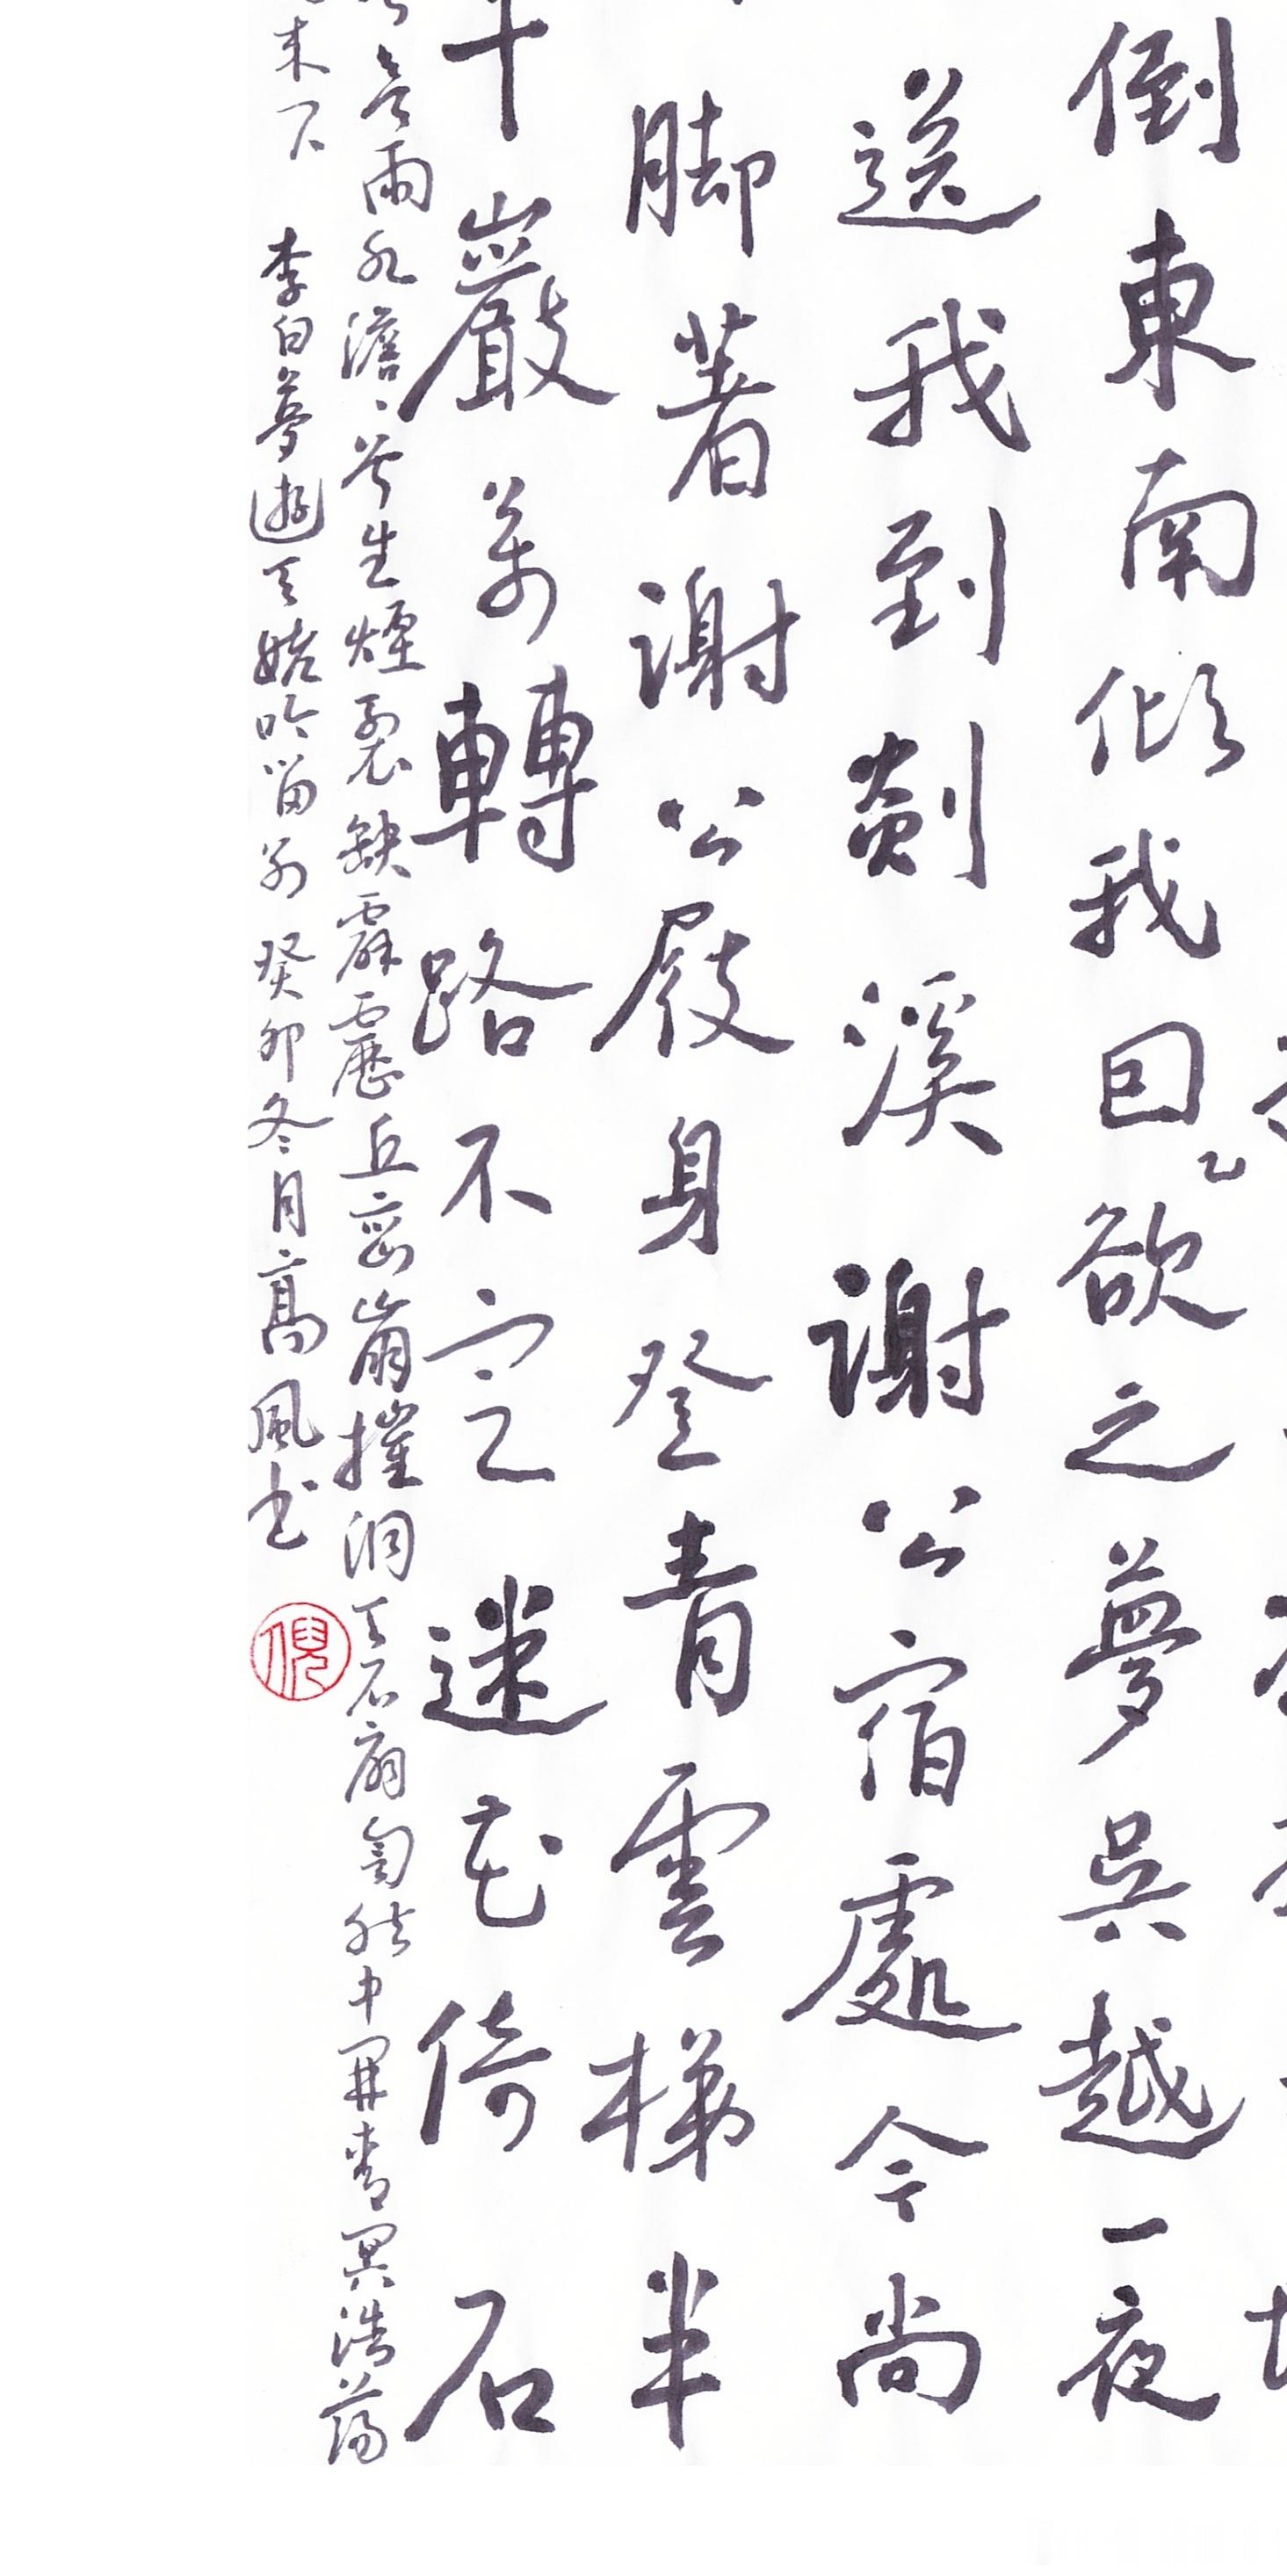 倒東南傾我囙乙欲之夢吳越一夜
送我到剡溪謝公宿處今尚
脚著謝公屐身登青雲梯半
千巖萬轉路不定迷花倚石
雨水澹、兮生煙裂缺霹靂丘巒崩摧洞天石扇訇然中開青冥浩蕩
来下 李白夢遊天姥吟留别 癸卯冬月高風书
倪